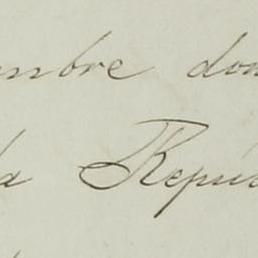 mbre don
la Repú